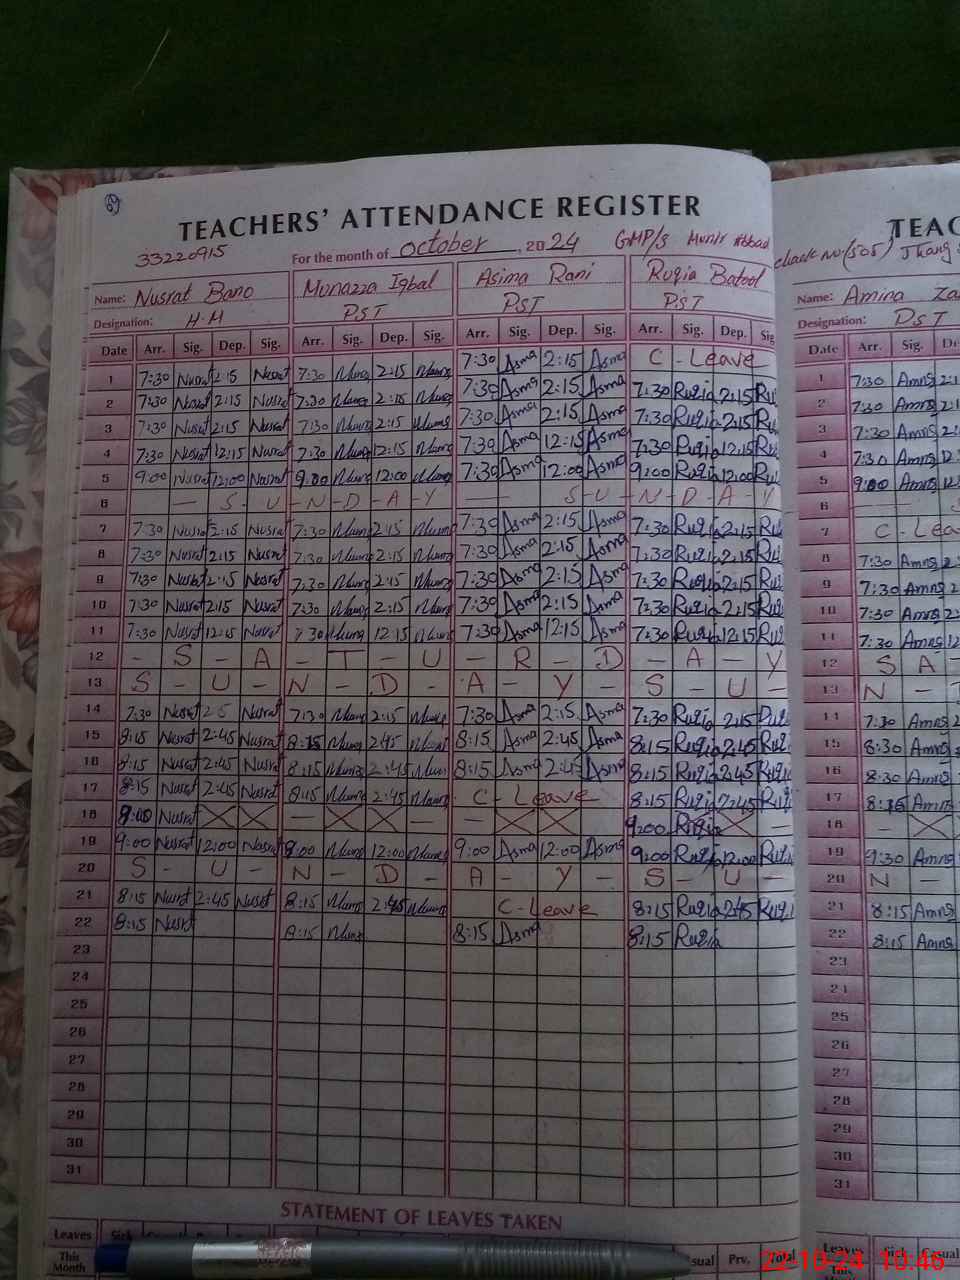 69
TEACHERS' ATTENDANCE REGISTER
TEAC
33220915 For the month of October, 2024 GMP/S Munir Abbad
chack No (505) Jhang
Name: Nusrat Bano Munazza Iqbal Asima Rani Ruqia Batool Name: Amina Za
Designation: H.M PST PST PST Designation: PST
Date Arr. Sig. Dep. Sig. Arr. Sig. Dep. Sig. Arr. Sig. Dep. Sig. Arr. Sig. Dep. Sig Date Arr. Sig. De
1 7:30 Nusrat 2:15 Nusrat 7:30 Muna 2:15 Muna 7:30 Asma 2:15 Asma C - Leave 1 7:30 Amna 2:1
2 7:30 Nusrat 2:15 Nusrat 7:30 Muna 2:15 Muna 7:30 Asma 2:15 Asma 7:30 Ruqia 2:15 Ru 2 7:30 Amna 2:
3 7:30 Nusrat 2:15 Nusrat 7:30 Muna 2:15 Muna 7:30 Asma 2:15 Asma 7:30 Ruqia 2:15 Ru 3 7:30 Amna 2:
4 7:30 Nusrat 12:15 Nusrat 7:30 Muna 12:15 Muna 7:30 Asma 12:15 Asma 7:30 Ruqia 12:15 Ru 4 7:30 Amna 12
5 9:00 Nusrat 12:00 Nusrat 9:00 Muna 12:00 Muna 7:30 Asma 12:00 Asma 9:00 Ruqia 12:00 Ru 5 9:00 Amna 12
6 — S - U - N - D - A - Y — S - U - N - D - A - Y 6 — — S
7 7:30 Nusrat 2:15 Nusrat 7:30 Muna 2:15 Muna 7:30 Asma 2:15 Asma 7:30 Ruqia 2:15 Ru 7 C - Lea
8 7:30 Nusrat 2:15 Nusrat 7:30 Muna 2:15 Muna 7:30 Asma 2:15 Asma 7:30 Ruqia 2:15 Ru 8 7:30 Amna 2
9 7:30 Nusrat 2:15 Nusrat 7:30 Muna 2:15 Muna 7:30 Asma 2:15 Asma 7:30 Ruqia 2:15 Ru 9 7:30 Amna 2
10 7:30 Nusrat 2:15 Nusrat 7:30 Muna 2:15 Muna 7:30 Asma 2:15 Asma 7:30 Ruqia 2:15 Ru 10 7:30 Amna 2
11 7:30 Nusrat 12:15 Nusrat 7:30 Muna 12:15 Muna 7:30 Asma 12:15 Asma 7:30 Ruqia 12:15 Ru 11 7:30 Amna 12
12 - S - A - T - U - R - D - A - Y 12 S A -
13 S - U - N - D - A - Y - S - U - 13 N -
14 7:30 Nusrat Nusrat 7:30 Muna 2:15 Muna 7:30 Asma 2:15 Asma 7:30 Ruqia 2:15 Ru 14 7:30 Amna 2
15 8:15 Nusrat 2:45 Nusrat 8:15 Muna 2:45 Muna 8:15 Asma 2:45 Asma 8:15 Ruqia 2:45 Ru 15 8:30 Amna
16 8:15 Nusrat 2:45 Nusrat 8:15 Muna 2:45 Muna 8:15 Asma 2:45 Asma 8:15 Ruqia 2:45 Ruqi 16 8:30 Amna
17 8:15 Nusrat 2:45 Nusrat 8:15 Muna 2:45 Muna C - Leave 8:15 Ruqia 2:45 Ruqi 17 8:15 Amna
18 Nusrat — — — 9:00 Ruqia — 18 -
19 9:00 Nusrat 12:00 Nusrat 9:00 Muna 12:00 Muna 9:00 Asma 12:00 Asma 9:00 Ruqia 12:00 Ruqi 19 9:30 Amna
20 S - U - N - D - A - Y - S - U - 20 N -
21 8:15 Nusrat 2:45 Nusrat 8:15 Muna 2:45 Muna C - Leave 8:15 Ruqia 2:45 Ruqi 21 8:15 Amna
22 8:15 Nusrat 8:15 Muna 8:15 Asma 8:15 Ruqia 22 8:15 Amna
23 23
24 24
25 25
26 26
27 27
28 28
29 29
30 30
31 31
STATEMENT OF LEAVES TAKEN
Leaves Sick Leaves
This Month sual Prv, Total This
22-10-24 10:46